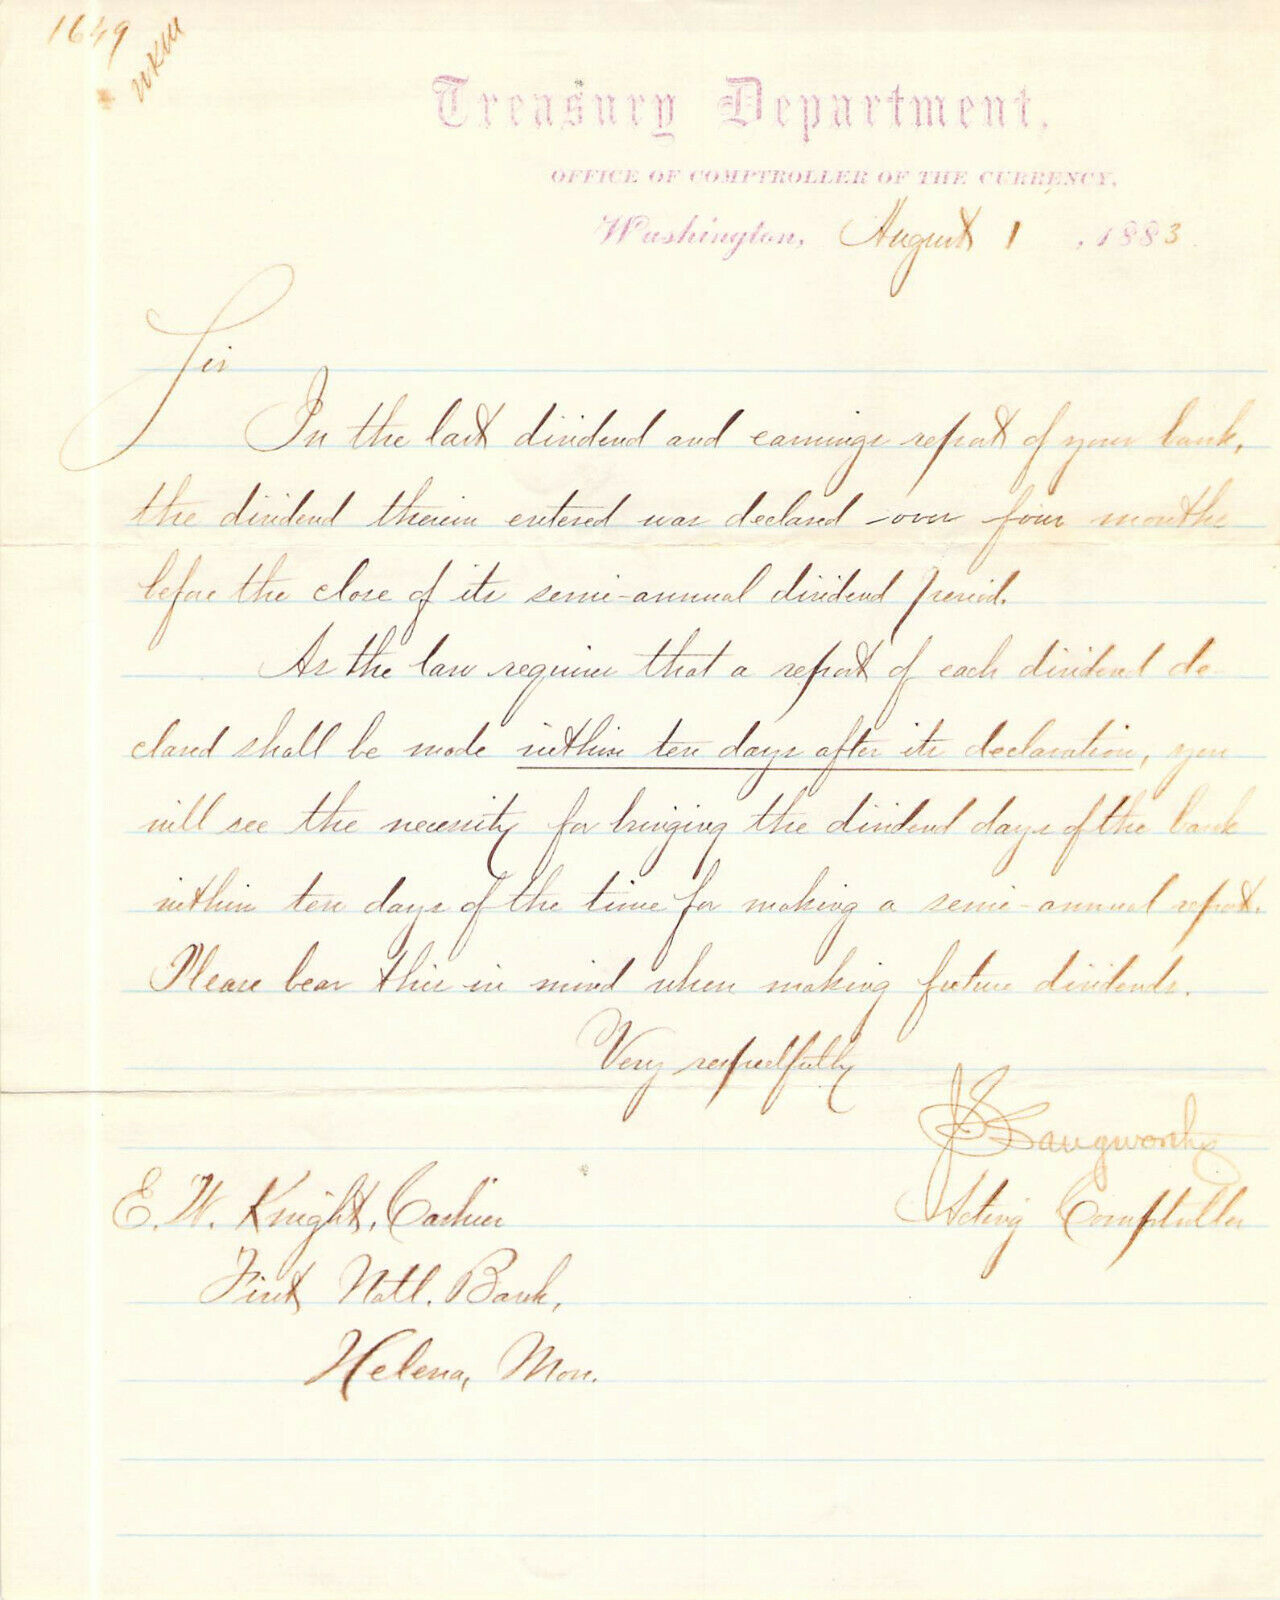 1649
Treasury Department,
OFFICE OF COMPTROLLER OF THE CURRENCY,
Washington, August 1, 1883.
Sir
In the last dividend and earnings report of your bank,
the dividend therein entered was declared over four months
before the close of its semi-annual dividend period.
As the law requires that a report of each dividend de-
clared shall be made within ten days after its declaration, you
will see the necessity for bringing the dividend days of the bank
within ten days of the time for making a semi-annual report.
Please bear this in mind when making future dividends.
Very respectfully
J S Langworthy
Acting Comptroller
E. W. Knight, Cashier
First Natl. Bank,
Helena, Mon.